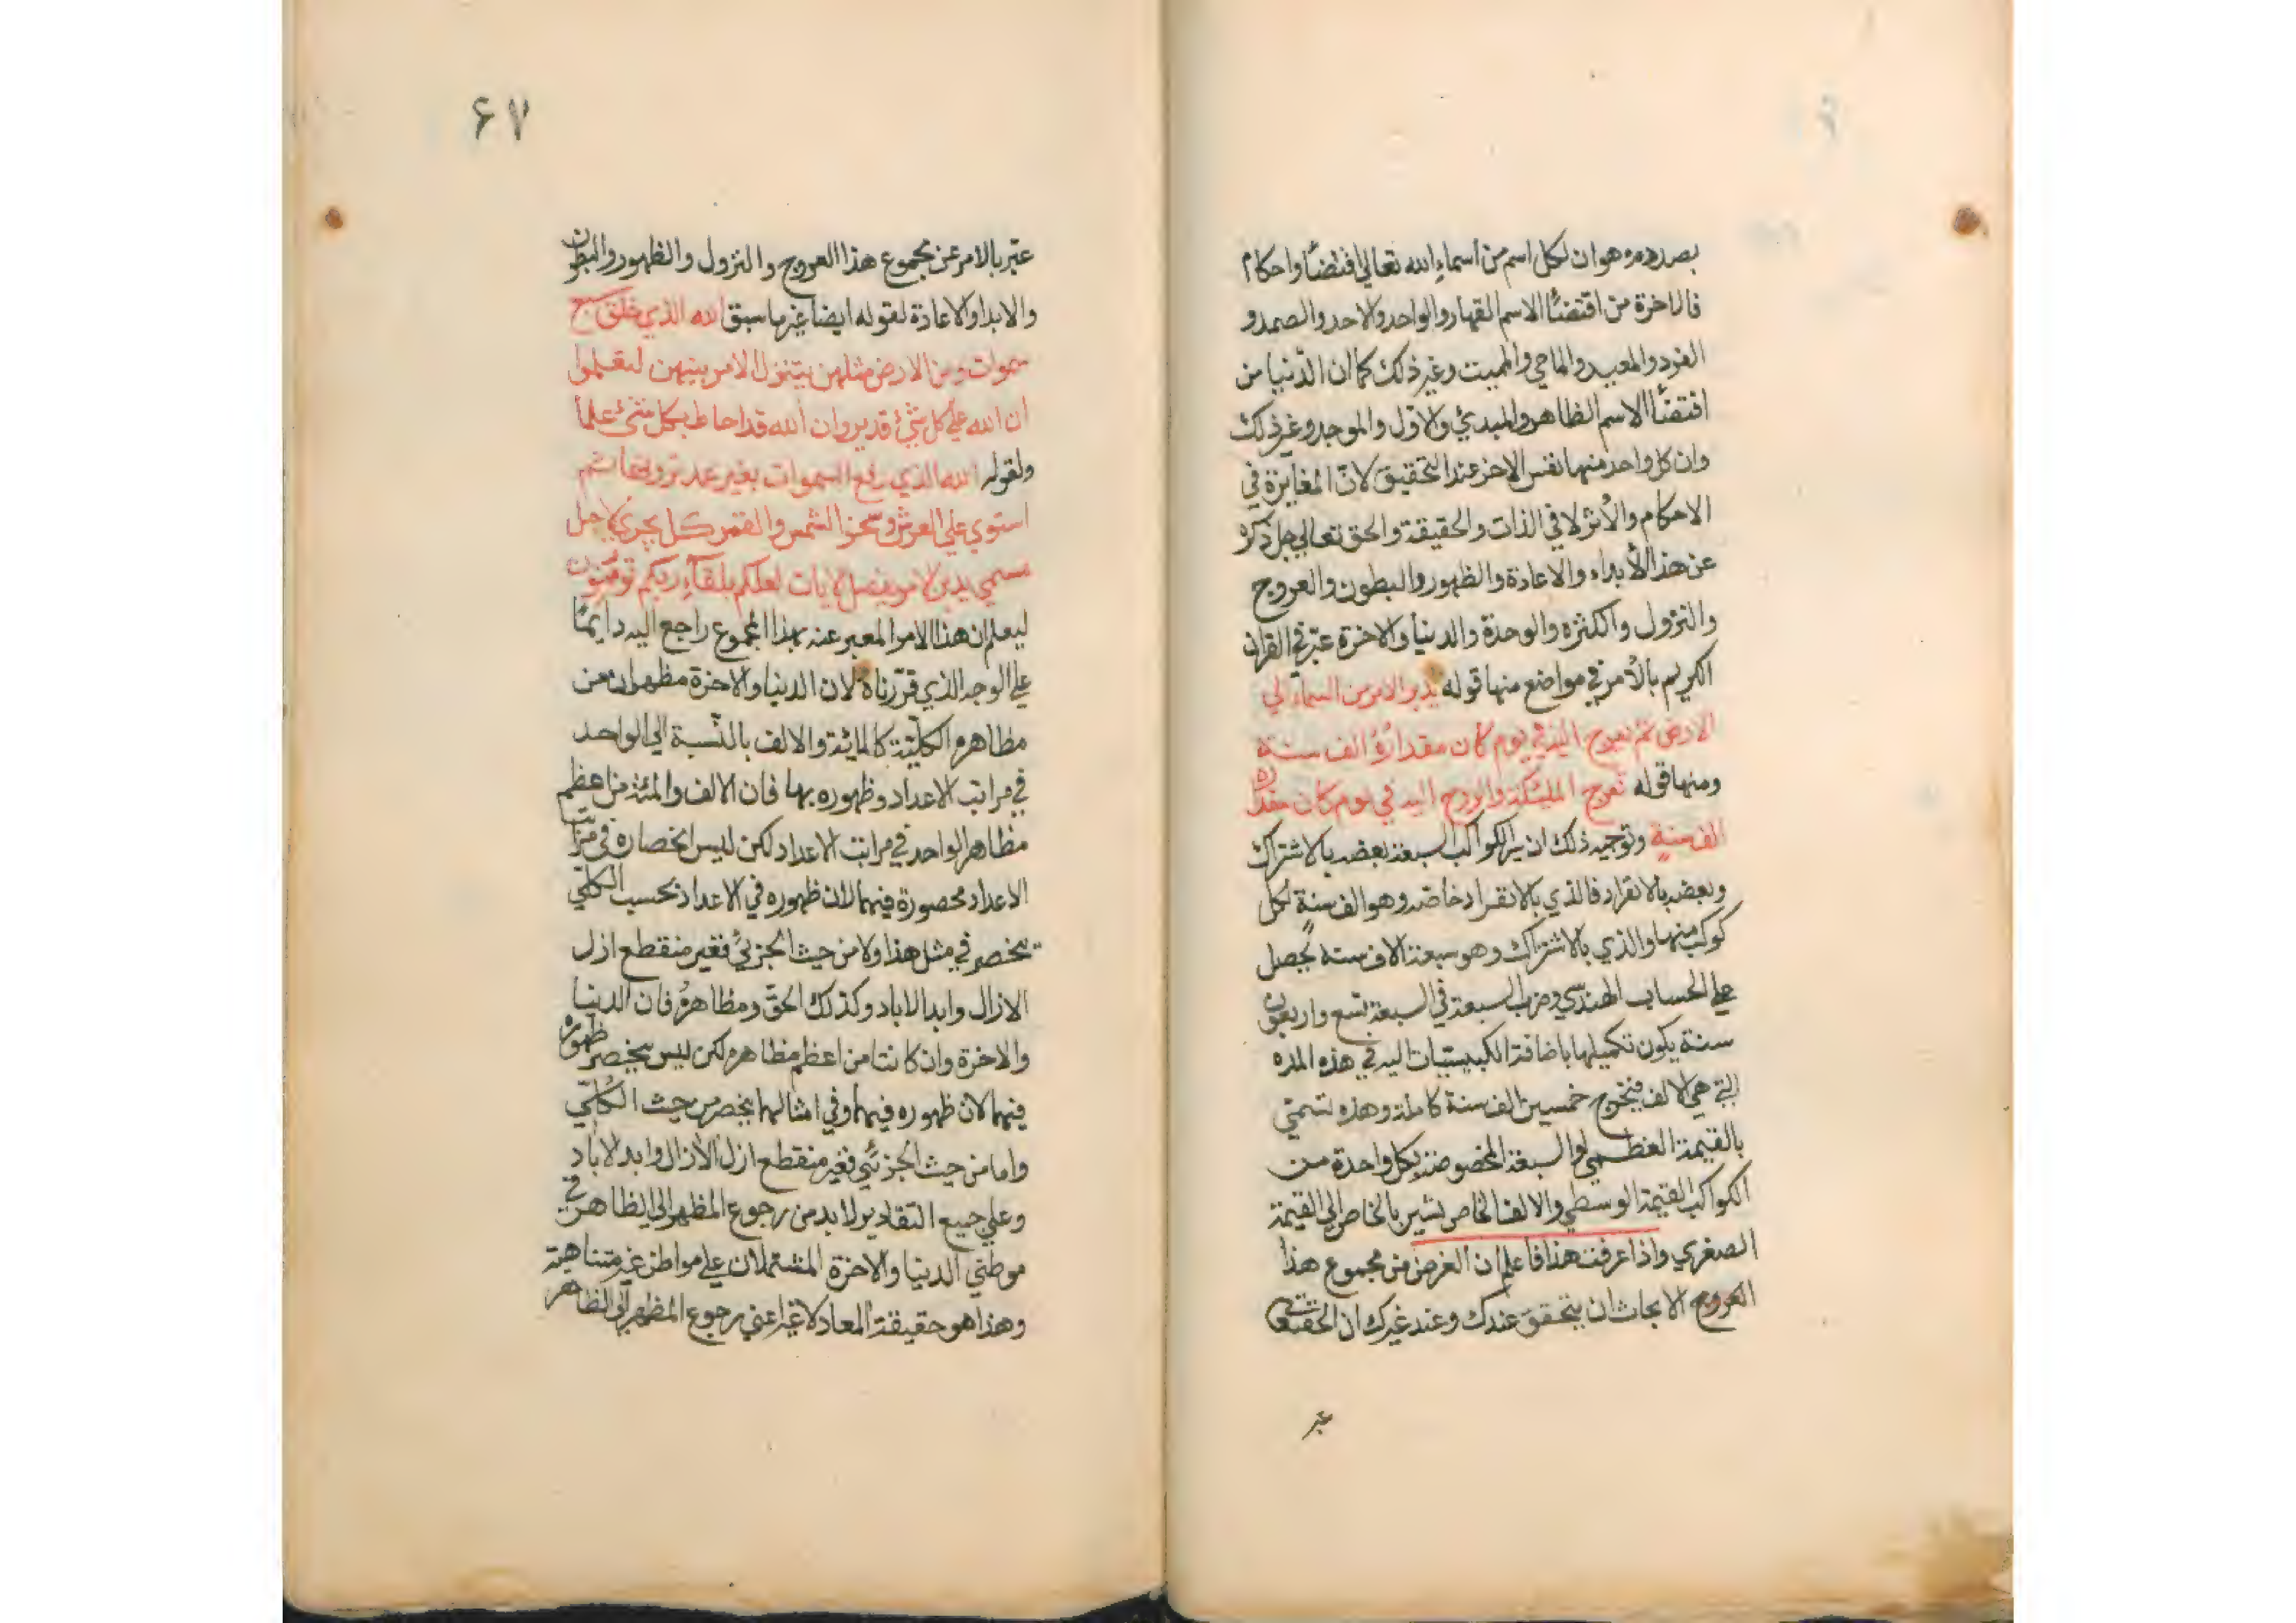 بصدده وهو ان لكل اسم من اسماء الله تعالى اقتضأ واحكام
فالاخرة من اقتضأ الاسم القهار والواحد والاحد والصمد و
الفرد والمعيد والماحي والمميت وغير ذلك كما ان الدنيا من
اقتضأ الاسم الظاهر والمبدئ والاول والموجد وغير ذلك
وان كل واحد منها نفس الاخر عند التحقيق لان المغايرة في
الاحكام والأثر لا في الذات والحقيقة والحق تعالى جل ذكره
عن هذا الأبداء والاعادة والظهور والبطون والعروج
والنزول والكثره والوحدة والدنيا والاخرة عبّر في القران
الكريم بالأمر في مواضع منها قوله يدبر الامر من السماء الى
الارض ثم يعرج اليه في يوم كان مقدارهُ الف سنة
ومنها قوله تعرج الملئكة والروح اليه في يوم كان مقداره
الف سنةٍ وتوجيه ذلك ان سير الكواكب السبعة بعضه بالاشتراك
وبعضه بالانفراد فالذي بالانفراد خاصه وهو الف سنةٍ لكل
كوكب منها والذي بالاشتراك وهو سبعة الاف سنه يحصل
على الحساب الهندسي وضرب السبعة في السبعة تسع واربعون
سنة يكون تكميلها باضافة الكبيسيات اليه في هذه المدة
التي هي الالف فيخرج خمسين الف سنة كاملة وهذه تسمى
بالقيمة العظمى والسبعة المخصوصة بكل واحدة من
الكواكب القيمة الوسطي والالف الخاص نشير بالخاص الى القيمة
الصغرى واذا عرفت هذا فاعلم ان الغرض من مجموع هذا
العروج الابحاث ان يتحقق عندك وعند غيرك ان الحق تعالى
عبر
۶۷
عبّر بالامر عن مجموع هذا العروج والنزول والظهور والبطون
والابدا والاعادة لقوله ايضا غير ما سبق الله الذي خلق سبع
سموات ومن الارض مثلهن يتنزل الامر بينهن لتعلموا
ان الله على كل شئ قدير وان الله قد احاط بكل شئ علما
ولقوله الله الذي رفع السموات بغير عمد ترونها ثم
استوي على العرش وسخر الشمس والقمر كل يجري لاجل
مسمي يدبر الامر يفصل الايات لعلكم بلقاء ربكم توقنون
ليعلم ان هذا الامر المعبر عنه بهذا المجموع راجع اليه دايمًا
على الوجه الذي قرّرناه لان الدنيا والاخرة مظهران من
مظاهره الكليّة كالمائة والالف بالنّسبة الى الواحد
في مراتب الاعداد وظهوره بها فان الالف والمئة من اعظم
مظاهر الواحد في مراتب الاعداد لكن ليس انحصاره في مراتب
الاعداد محصورة فيهما لان ظهوره في الاعداد بحسب الكلّي
ينحصر في مثل هذا ولا من حيث الجزئي فغير منقطع ازل
الازال وابد الاباد وكذلك الحقّ ومظاهرهُ فان الدنيا
والاخرة وان كانتا من اعظم مظاهره لكن ليس ينحصر ظهوره
فيهما لان ظهوره فيهما وفي امثالهما ينحصر من حيث الكلّي
واما من حيث الجزئي فغير منقطع ازل الأزال وابد لاباد
وعلى جميع التقادير لابد من رجوع المظهر الى الظاهر في
موطني الدنيا والاخرة المشتملان على مواطن غير متناهية
وهذا هو حقيقة المعاد لا غير اعني رجوع المظهر الى الظاهر